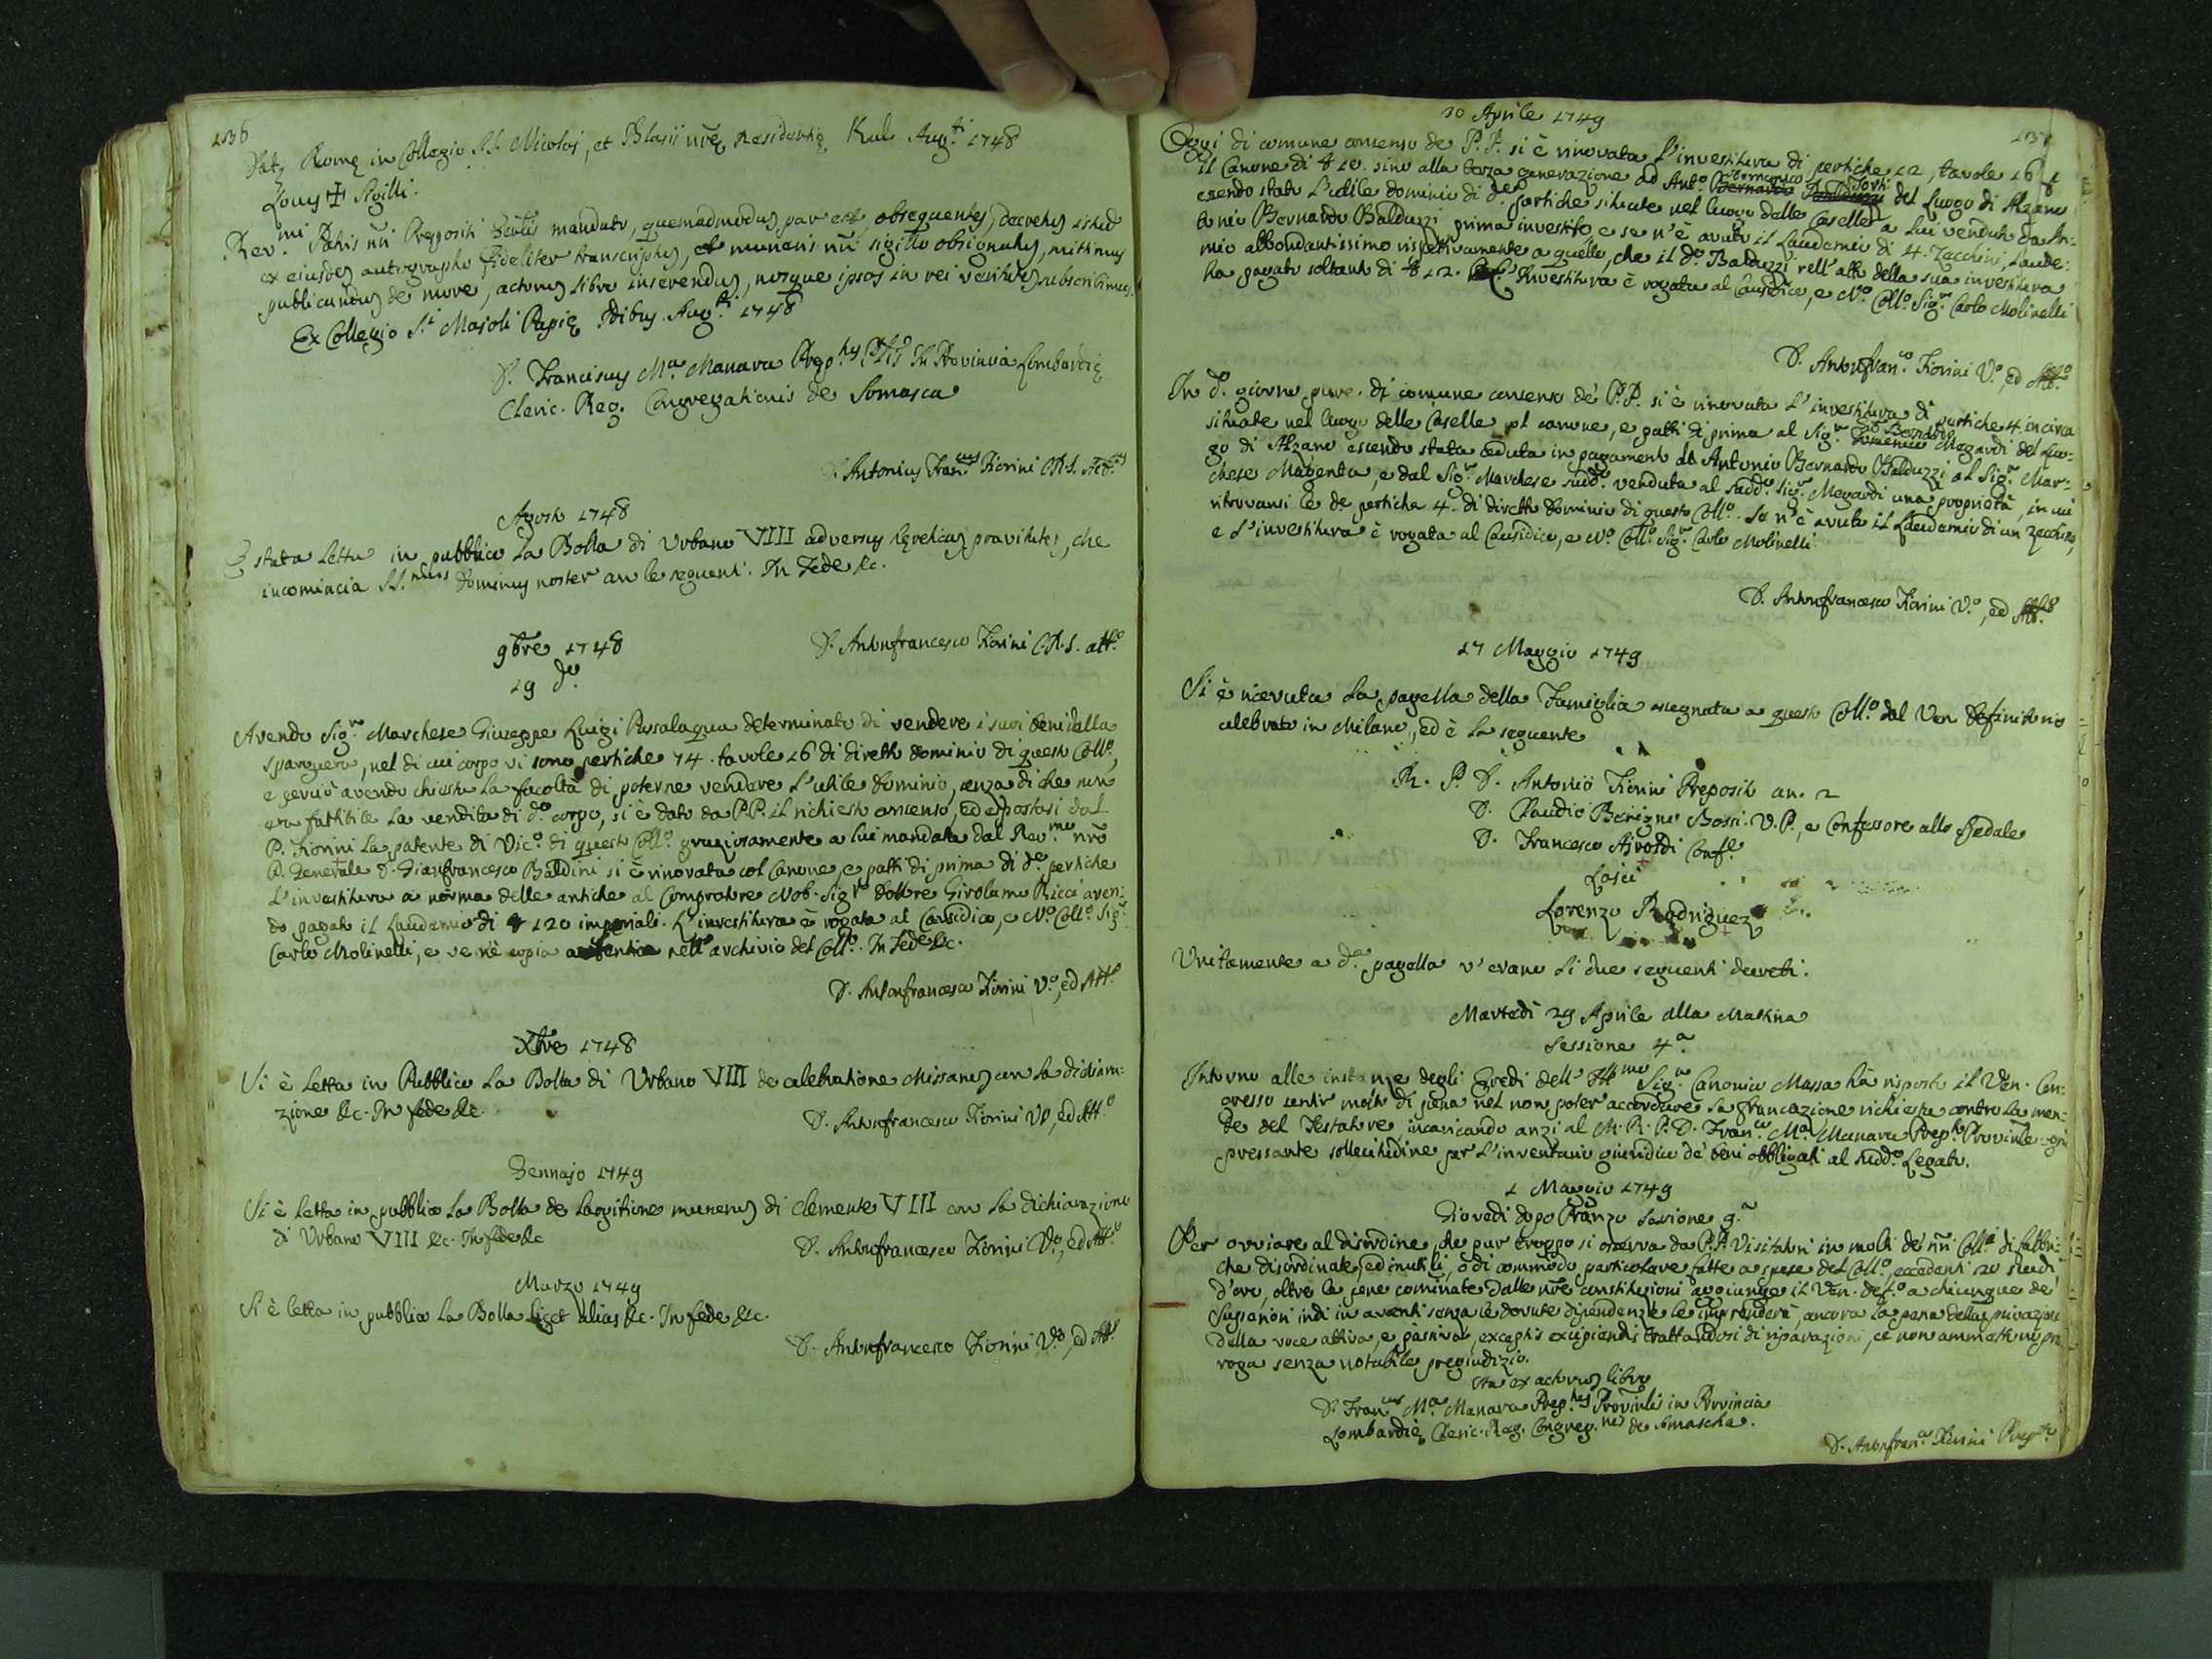 136
Dat. Romę in Collegio SS. Nicolai, et Blasii nr̄ę Residentię Kal. Aug.ti 1748
Locus ✝ Sigilli.
Rev.mi Patris nr̄i Prępositi Gen̄lis mandato, quemadmodum par est obsequentes, Decretum istud
ex eiusdem autographo fideliter transcriptum, et muneris nr̄i sigillo obsignatum, mittimus
publicandum de more, actorum libro inserendum, nosque ipsos in rei veritatem subscribimus.
Ex Collegio S.ti Majoli Papię Idibus Aug.ti 1748
D. Franciscus M.a Manara Pręp.tus P̄lis in Provincia Lombardię
Cleric. Reg. Congregationis de Somasca
D. Antonius Fran.cus Fiorini C.R.S. Act.us
Agosto 1748
È stata letta in pubblico la Bolla di Urbano VIII adversus hęreticam pravitatem, che
incomincia SS.mus Dominus noster con le seguenti. In Fede &c.
D. Antonfrancesco Fiorini C.R.S. att.o
9bre 1748
19 d.o
Avendo Sig.r Marchese Giuseppe Luigi Passalaqua determinato di vendere i suoi beni alla
Sparguera, nel di cui corpo vi sono pertiche 74. tavole 16 di diretto dominio di questo Coll.o,
e perciò avendo chiesta la facoltà di poterne vendere l'utile dominio, senza di che non
era fattibile la vendita di d.o corpo, si è dato da P.P. il richiesto consenso, ed espostasi dal
P. Fiorini la patente di Vic.o di questo Coll.o graziosamente a lui mandata dal Rev.mo nr̄o
P. Generale D. Gianfrancesco Baldini si è rinovata col Canone, e patti di prima di d.e pertiche
l'investitura a norma delle antiche al Compratore Nob. Sig.r Dottore Girolamo Ricci aven:
do pagato il Laudemio di 120 imperiali. L'investitura è rogata al Causidico, e N.o Coll.o Sig.r
Carlo Molinelli, e ve n'è copia autentica nell'archivio del Coll.o. In Fede &c.
D. Antonfrancesco Fiorini V.o, ed Att.o
Xbre 1748
Si è letta in Pubblico la Bolla di Urbano VIII de celebratione Missarum con la dichiara:
zione &c. In fede &c.
D. Antonfrancesco Fiorini V.o, ed Att.o
Gennajo 1749
Si è letta in pubblico la Bolla de Largitione munerum di Clemente VIII con la dichiarazione
di Urbano VIII &c. In fede &c
D. Antonfrancesco Fiorini V.o, ed Att.o
Marzo 1749
Si è letta in pubblico la Bolla licet alias &c. In fede &c.
D. Antonfrancesco Fiorini V.o, ed Att.o
137
10 Aprile 1749
Oggi di comune consenso de P.P. si è rinovata l'investitura di pertiche 12, tavole 16
il Canone di 10. sino alla terza generazione ad Ant.o Domenico Forti del luogo di Alzano
essendo stato l'utile dominio di d.e pertiche situate nel luogo delle Caselle a lui venduto da An:
tonio Bernardo Balduzzi prima investito, e se n'è avuto il Laudemio di 4. Zecchini, Laude:
mio abbondantissimo rispettivamente a quello, che il d.o Balduzzi nell'atto della sua investitura
ha pagato soltanto di 12. L'Investitura è rogata al Causidico, e N.o Coll.o Sig.r Carlo Molinelli
D. Antonfran.co Fiorini V.o, ed Att.o
In d.o giorno pure di comune consenso de' P.P. si è rinovata l'investitura di pertiche 4 in circa
situate nel luogo delle Caselle col canone, e patti di prima al Sig.r Gio Bernardo Megardi del luo:
go di Alzano essendo stata ceduta in pagamento da Antonio Bernardo Balduzzi al Sig.r Mar:
chese Magenta, e dal Sig.r Marchese sudd.o venduta al sudd.o Sig.r Megardi una proprietà, in cui
ritrovansi le d.e pertiche 4. di diretto dominio di questo Coll.o. Se n'è avuto il Laudemio di un Zecchino,
e l'investitura è rogata al Causidico, e N.o Coll.o Sig.r Carlo Molinelli.
D. Antonfrancesco Fiorini V.o, ed Att.o
17 Maggio 1749
Si è ricevuta la pagella della Famiglia assegnata a questo Coll.o dal Ven. Definitorio
celebrato in Milano, ed è la seguente
M. R. P. D. Antonio Fiorini Preposito an. 2
D. Claudio Benigno Bossi V.P., e Confessore allo Spedale
D. Francesco Airoldi Conf.e
Laici
Lorenzo Rodriguez
Unitamente a d.a pagella v'erano li due seguenti decreti.
Martedì 29 Aprile alla Mattina
Sessione 4.a
Intorno alle instanze degli Eredi dell' Ill.mo Sig.r Canonico Massa hà risposto il Ven. Con:
gresso sentir molto di pena nel non poter accordare la francazione richiesta contro la men:
te del Testatore incaricando anzi al M. R. P. D. Fran.co M.a Manara Prep.to Provinle ogni
pressante sollecitudine per l'inventario giuridico de' beni obbligati al sudd.o Legato.
1 Maggio 1749
Giovedì dopo Pranzo Sessione 9.a
Per ovviare al disordine, che pur troppo si osserva da P.P. Visitatori in molti de' nr̄i Coll.i di fabbri:
che disordinate, ed inutili, o di commodo particolare fatte a spese del Coll.o, eccedenti 20 scudi
d'oro, oltre le pene cominate dalle nr̄e constituzioni aggiunge il Ven. Def.o a chiunque de'
Superiori indi in avanti senza le dovute dipendenze le imprenderà, ancora la pena della privazione
della voce attiva, e passiva, exceptis excipiendis trattandosi di riparazioni, ce non ammettino pro
roga senza notabile pregiudizio.
Ita ex actorum libro
D. Fran.cus M.a Manara Prep.tus Provin̄lis in Provincia
Lombardię Cleric. Reg. Congreg.nis de Somascha.
D. Antonfran.co Fiorini Prep.to